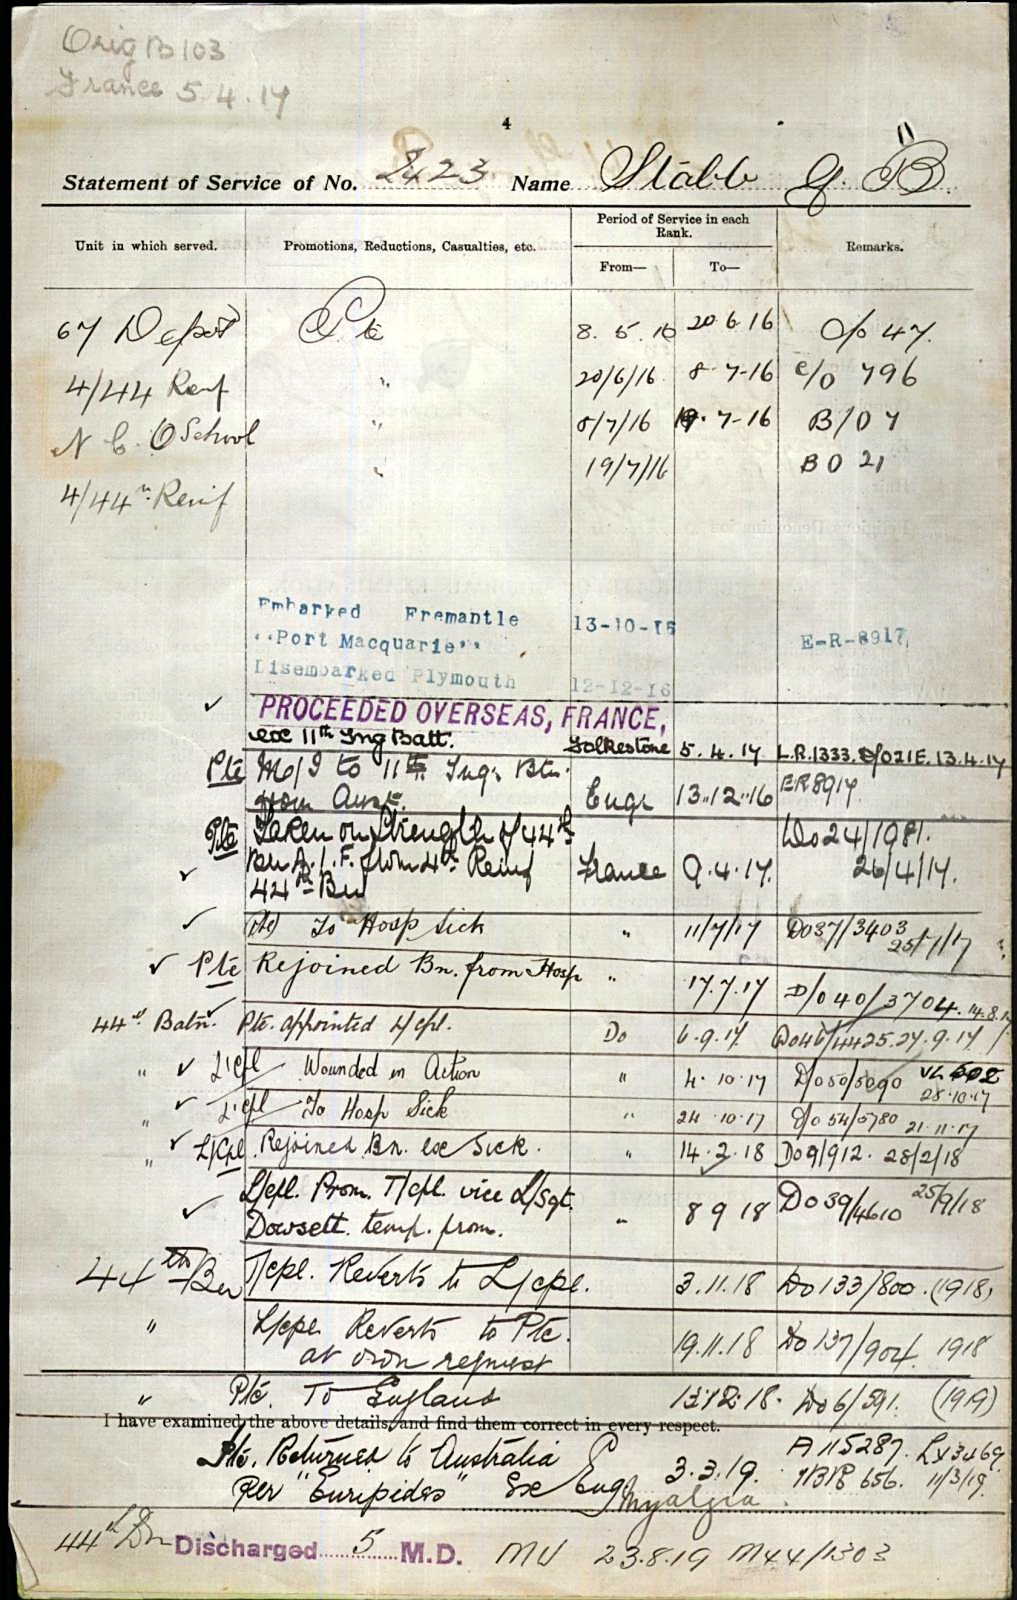 Orig B103
France 5.4.17
4
Statement of Service of No. 2423 Name Stabb G. B.
Unit in which served. Promotions, Reductions, Casualties, etc. Period of Service in each Rank. Remarks.
From— To—
67 Depot Pte 8.5.16 20.6.16 O/o 47.
4/44 Reinf " 20/6/16 8-7-16 C/O 796
N C O School " 8/7/16 19.7-16 B/O 7
4/44th Reinf " 19/7/16 B O 21
Embarked Fremantle 13-10-16
"Port Macquarie" E-R-8917
Disembarked Plymouth 12-12-16
✓ PROCEEDED OVERSEAS, FRANCE,
ex 11th Tng Batt. Folkestone 5.4.17 L.R.1333. D/O21E. 13.4.17
Pte M/I to 11th Tng. Btn. from Aust. Engl 13.12.16 ER8917
Pte Taken on Strength of 44th Do24/1981.
✓ Bn A.I.F. from 4th Reinf France 9.4.17. 26/4/17.
44th Bn
✓ Pte To Hosp Sick " 11/7/17 Do37/3403 25/7/17
✓ Pte Rejoined Bn. from Hosp " 17.7.17 D/O40/3704. 14.8.17
44th Batn. ✓ Pte. appointed L/cpl. Do 6.9.17 Do46/4425.27.9.17
" ✓ L/Cpl Wounded in Action " 4.10.17 D/o50/5090 28.10.17
" ✓ L/Cpl To Hosp Sick " 24.10.17 D/o 54/5780 21.11.17
" ✓ L/Cpl Rejoined Bn. ex Sick. " 14.2.18 Do9/912. 28/2/18
✓ L/cpl. Prom. T/Cpl. vice L/Sgt. Dowsett temp. prom. " 8 9 18 Do39/4610 25/9/18
44th Bn T/cpl. Reverts to L/cpl. 3.11.18 Do133/800. (1918)
" L/cpl. Reverts to Pte. at own request 19.11.18 Do137/904. 1918
" Pte. To England 13.12.18. Do6/591. (1919)
I have examined the above details, and find them correct in every respect.
Pte. Returned to Australia A115287. Lx3469
Per "Euripides" Ex Engl 3.3.19. 656. 11/3/19.
Myalgia.
44th Bn Discharged 5 M.D. MU 23.8.19 M44/1303